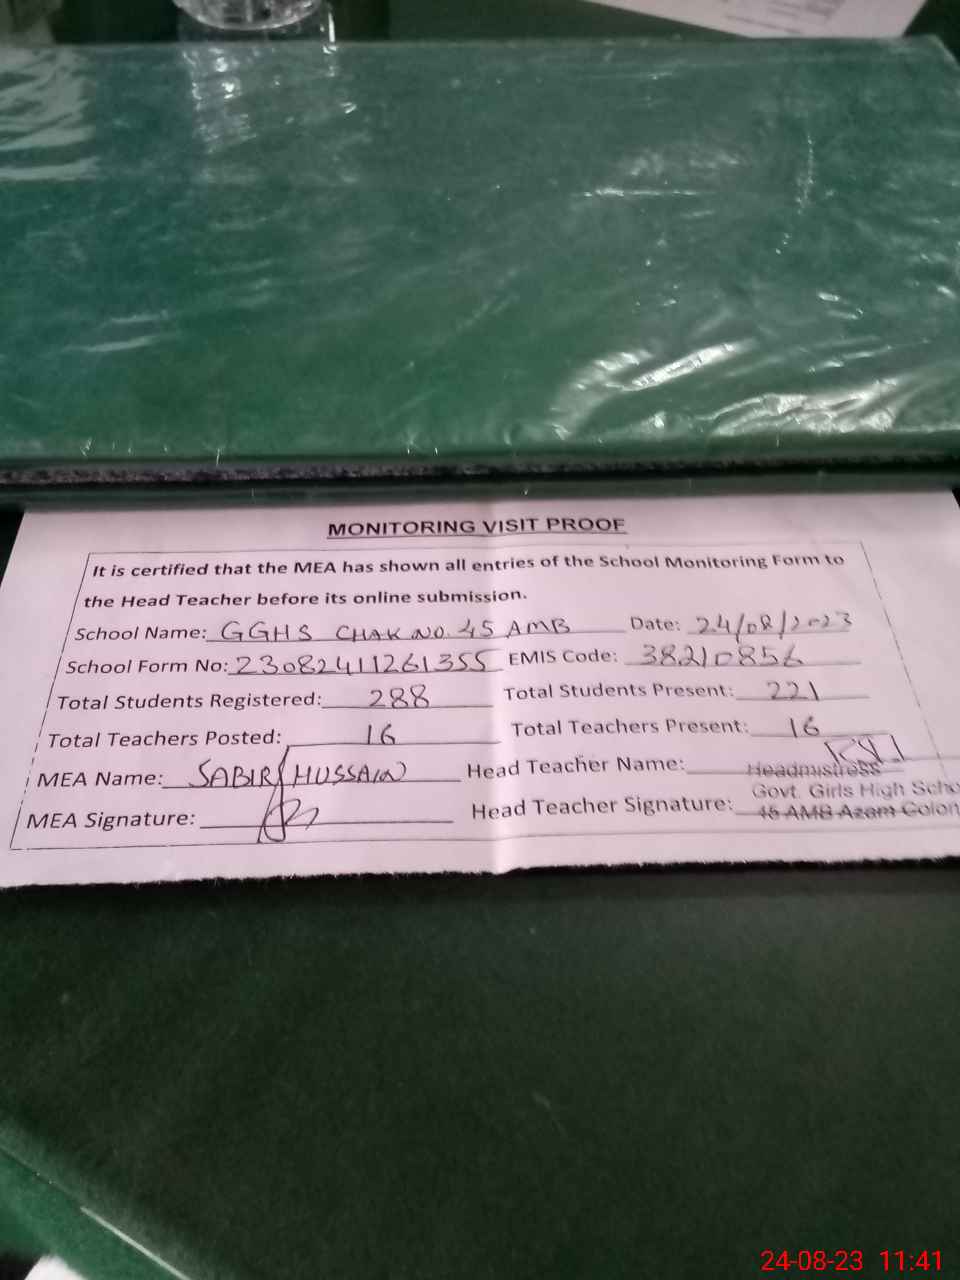 MONITORING VISIT PROOF
It is certified that the MEA has shown all entries of the School Monitoring Form to
the Head Teacher before its online submission.
School Name: GGHS CHAK NO. 45 AMB Date: 24/08/2023
School Form No: 23082411261355 EMIS Code: 38210856
Total Students Registered: 288 Total Students Present: 221
Total Teachers Posted: 16 Total Teachers Present: 16
MEA Name: SABIR HUSSAIN Head Teacher Name:
Headmistress
Govt. Girls High Scho
MEA Signature: Head Teacher Signature: 45 AMB Azam Colon
24-08-23 11:41